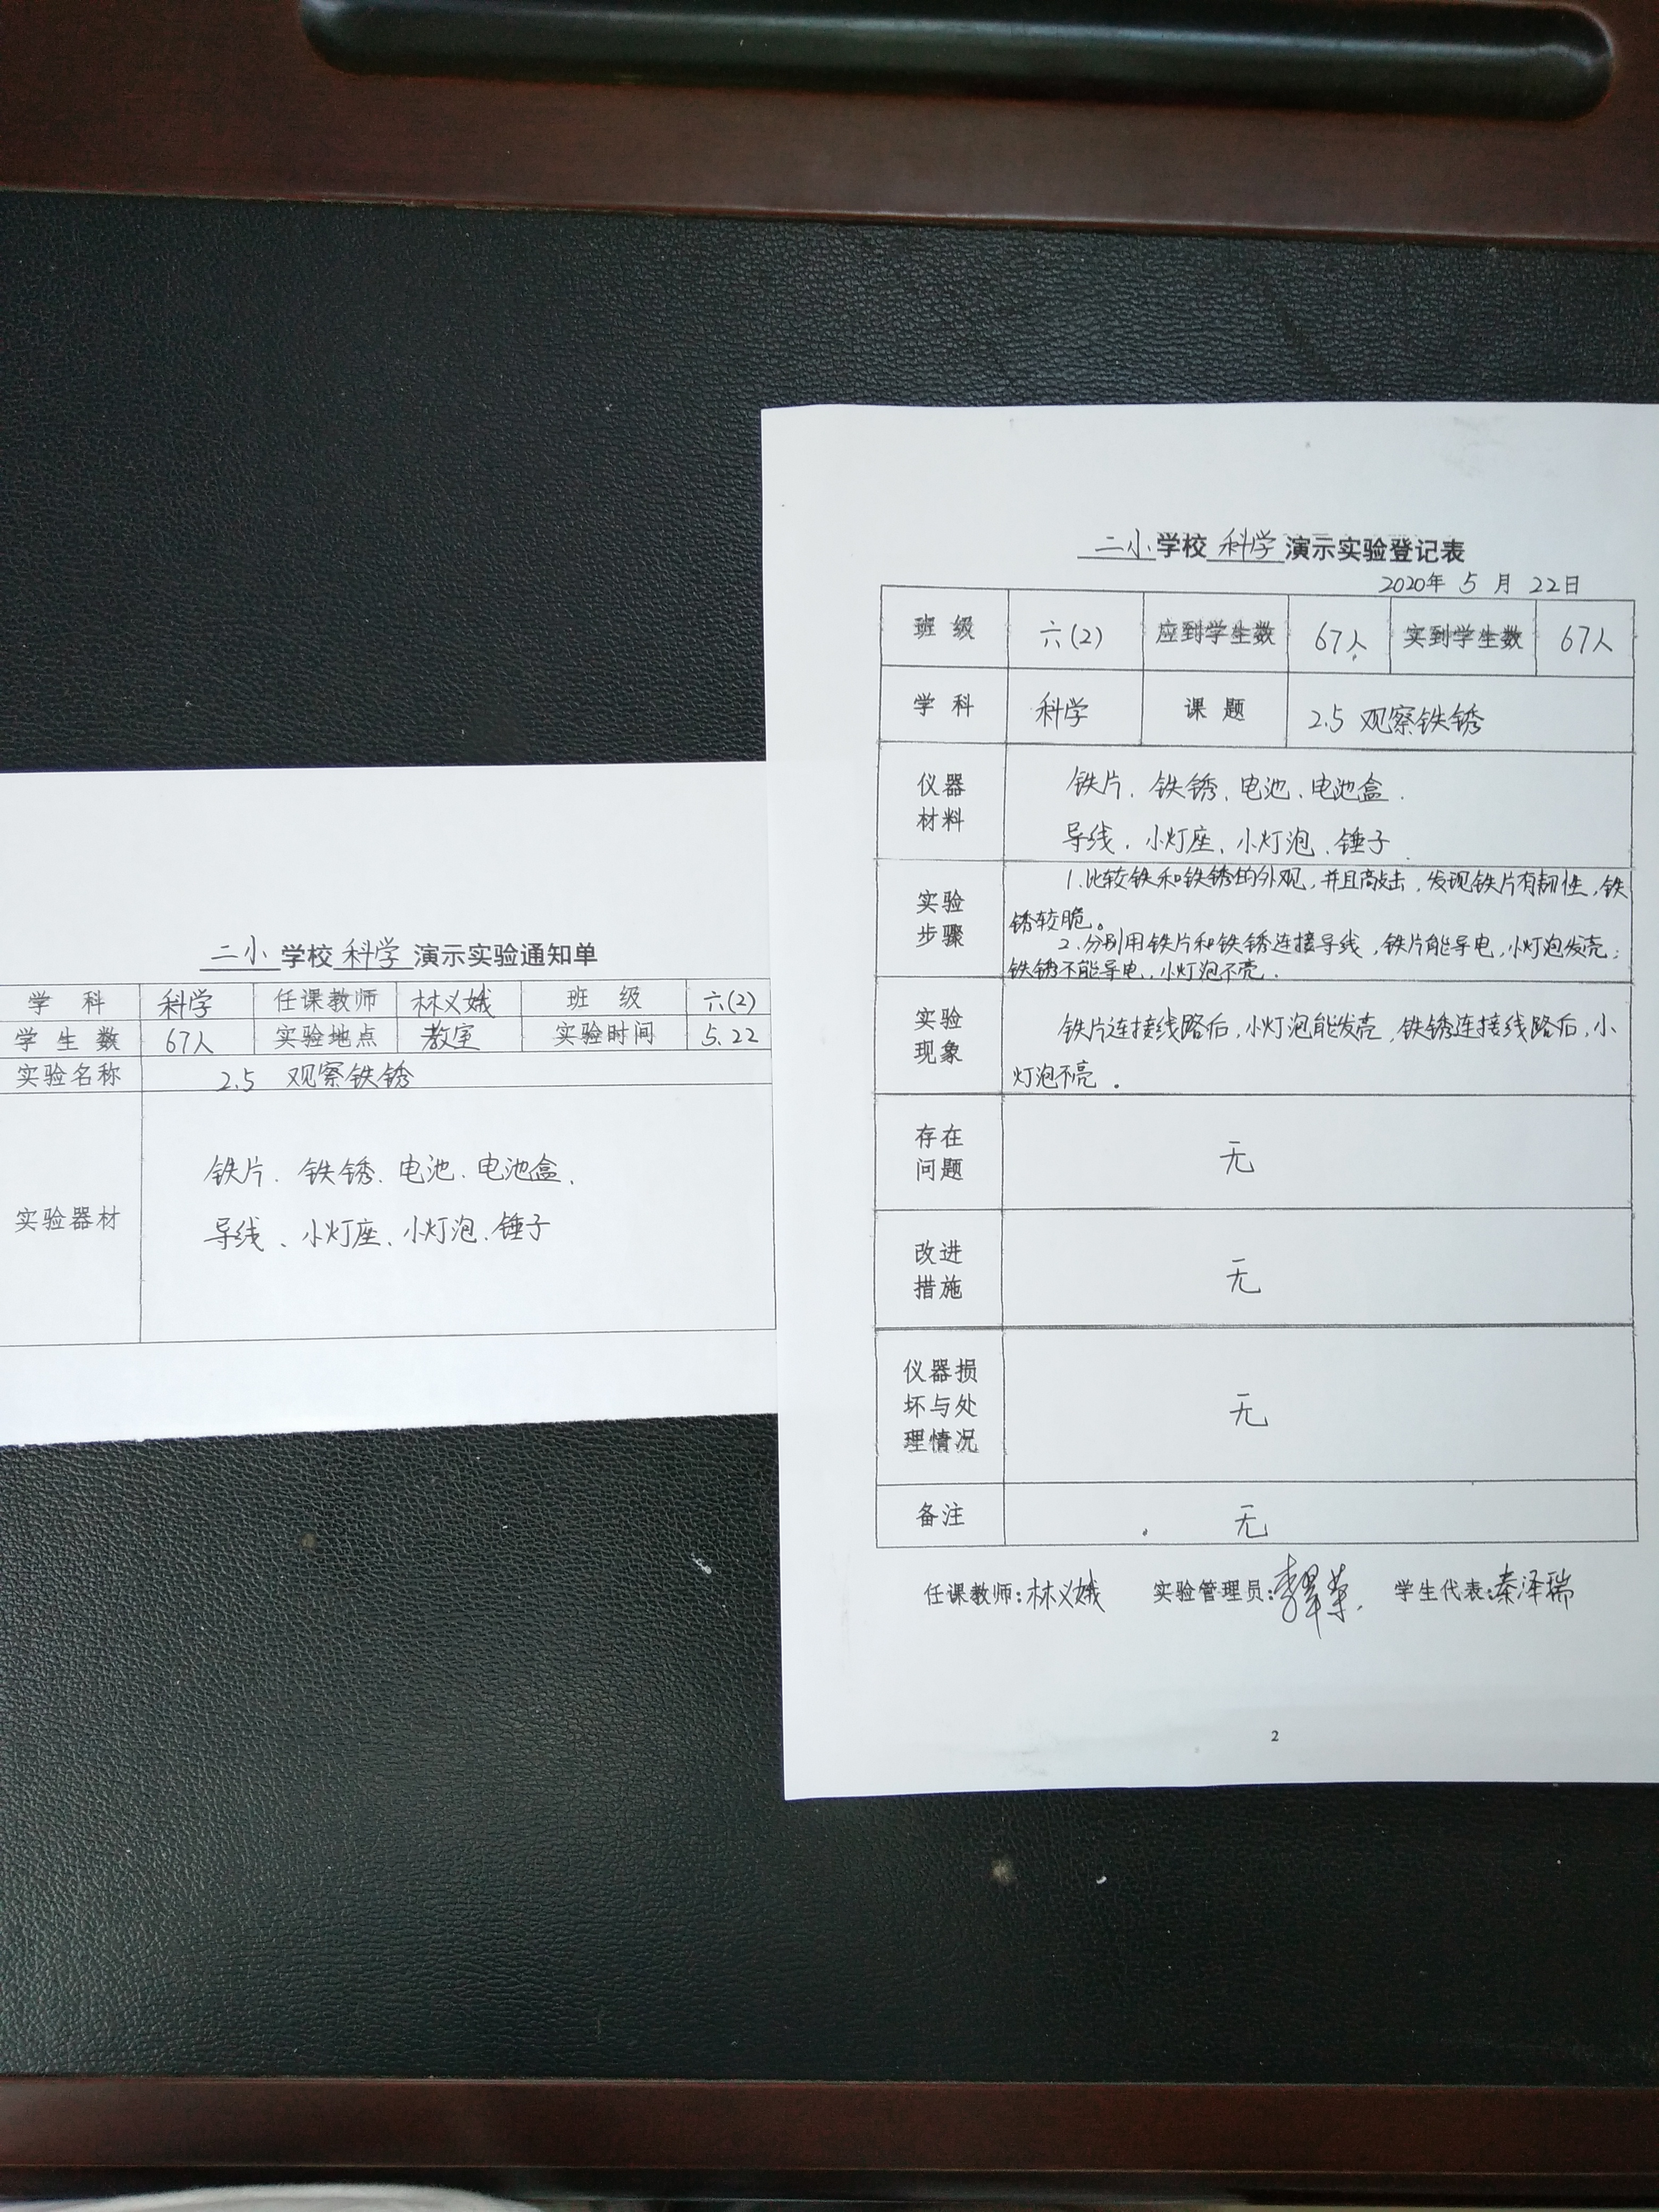 二小学校科学演示实验通知单
学科 科学 任课教师 林义娥 班级 六(2)
学生数 67人 实验地点 教室 实验时间 5.22
实验名称 2.5 观察铁锈
实验器材
铁片、铁锈、电池、电池盒、
导线、小灯座、小灯泡、锤子
二小学校科学演示实验登记表
2020年 5 月 22日
班级 六(2) 应到学生数 67人 实到学生数 67人
学科 科学 课题 2.5 观察铁锈
仪器
材料
铁片、铁锈、电池、电池盒、
导线、小灯座、小灯泡、锤子
实验
步骤
1.比较铁和铁锈的外观,并且敲击,发现铁片有韧性,铁
锈较脆。
2.分别用铁片和铁锈连接导线,铁片能导电,小灯泡发亮;
铁锈不能导电,小灯泡不亮.
实验
现象
铁片连接线路后,小灯泡能发亮,铁锈连接线路后,小
灯泡不亮.
存在
问题
无
改进
措施
无
仪器损
坏与处
理情况
无
备注 无
任课教师:林义娥 实验管理员: 学生代表:秦泽瑞
2